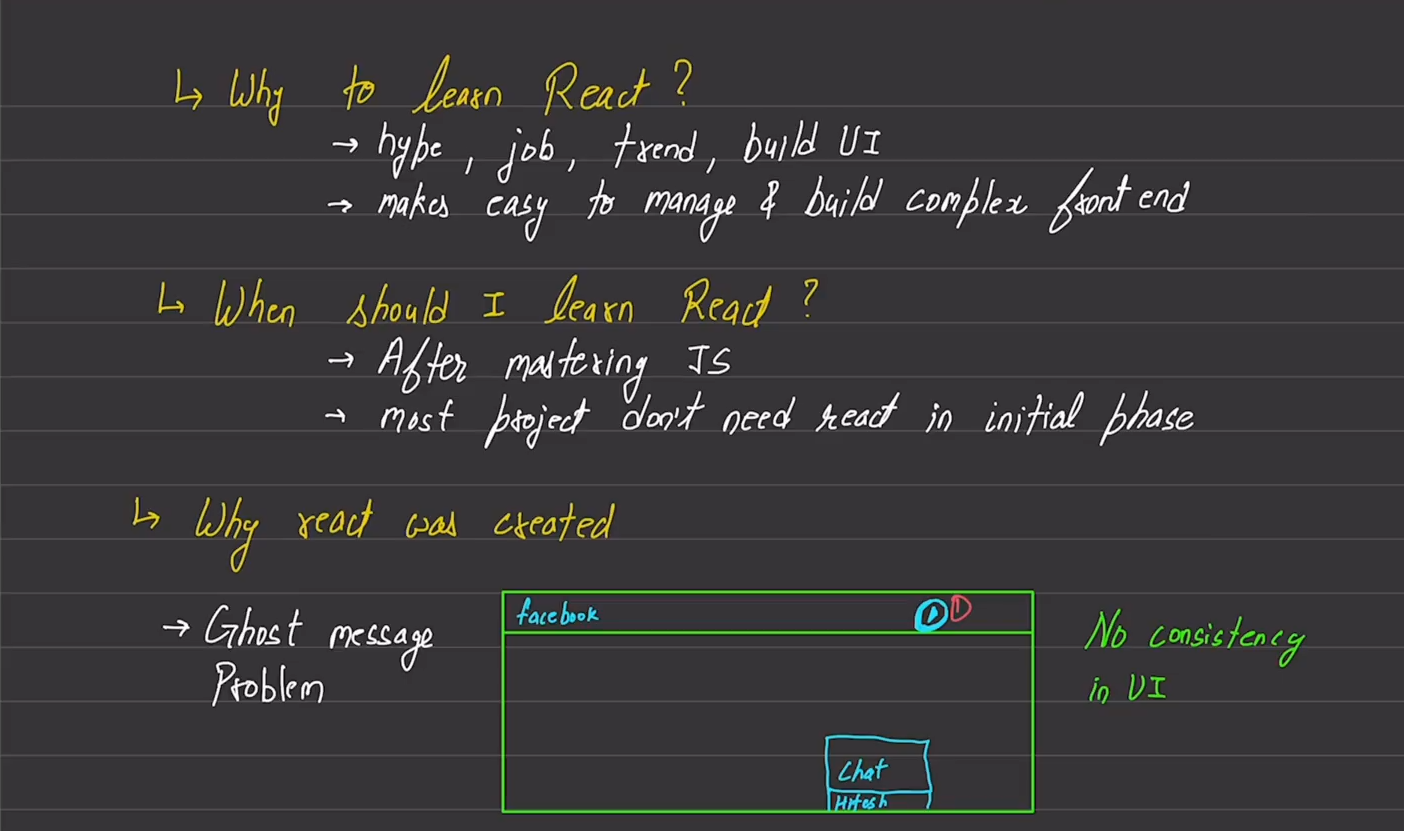 ↳ Why to learn React?
→ hype, job, trend, build UI
→ makes easy to manage & build complex front end
↳ When should I learn React?
→ After mastering JS
→ most project don't need react in initial phase
↳ Why react was created
→ Ghost message
Problem
facebook
1
No consistency
in UI
Chat
Hitesh